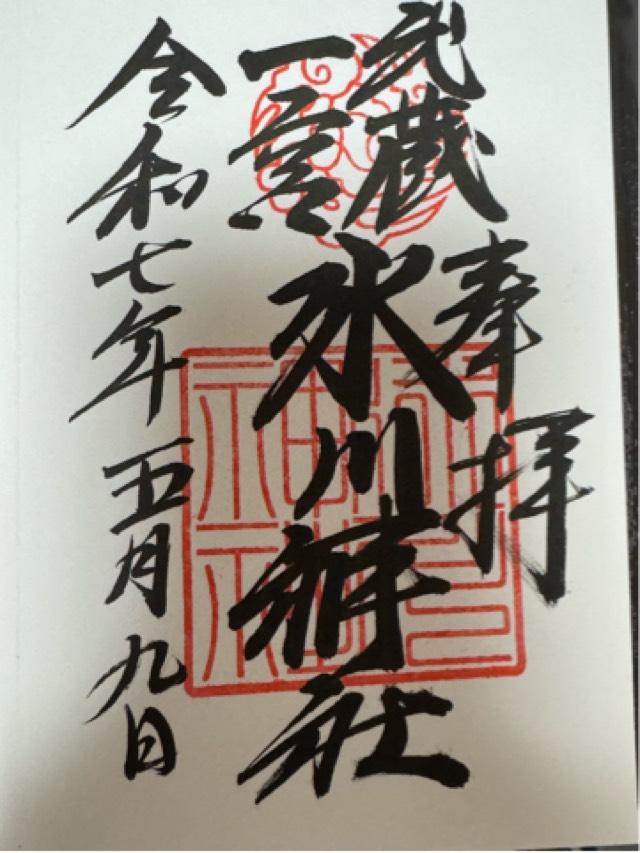 奉拝
武蔵
一宮
氷川神社
令和七年五月九日